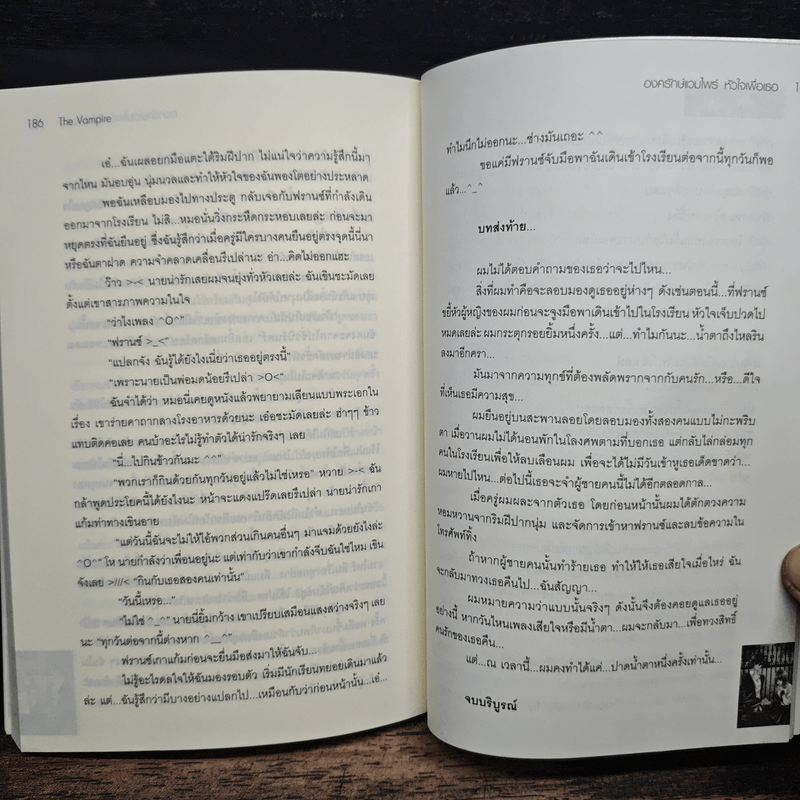 186 The Vampire
เอ๋...ฉันเผลอยกมือแตะใต้ริมฝีปาก ไม่แน่ใจว่าความรู้สึกนี้มา
จากไหน มันอบอุ่น นุ่มนวลและทำให้หัวใจของฉันพองโตอย่างประหลาด
พอฉันเหลือบมองไปทางประตู กลับเจอกับฟรานซ์ที่กำลังเดิน
ออกมาจากโรงเรียน ไม่สิ...หมอนั่นวิ่งกระหืดกระหอบเลยล่ะ ก่อนจะมา
หยุดตรงที่ฉันยืนอยู่ ซึ่งฉันรู้สึกว่าเมื่อครู่มีใครบางคนยืนอยู่ตรงจุดนี้นี่นา
หรือฉันตาฝาด ความจำคลาดเคลื่อนรึเปล่านะ อ่า...คิดไม่ออกแฮะ
ว้าว >-< นายน่ารักเสยผมจนยุ่งทั่วหัวเลยล่ะ ฉันเขินชะมัดเลย
ตั้งแต่เขาสารภาพความในใจ
"ว่าไงเพลง ^O^"
"ฟรานซ์ >_<"
"แปลกจัง ฉันรู้ได้ยังไงเนี่ยว่าเธออยู่ตรงนี้"
"เพราะนายเป็นพ่อมดน้อยรึเปล่า >O<"
ฉันจำได้ว่า หมอนี่เคยดูหนังแล้วพยายามเลียนแบบพระเอกใน
เรื่อง เขาร่ายคาถากลางโรงอาหารด้วยนะ เอ๋อชะมัดเลยล่ะ ฮ่าๆๆ ข้าว
แทบติดคอเลย คนบ้าอะไรไม่รู้ทำตัวได้น่ารักจริงๆ เลย
"นี่...ไปกินข้าวกันมะ ^^"
"พวกเราก็กินด้วยกันทุกวันอยู่แล้วไม่ใช่เหรอ" หวาย >-< ฉัน
กล้าพูดประโยคนี้ได้ยังไงนะ หน้าจะแดงแปร๊ดเลยรึเปล่า นายน่ารักเกา
แก้มทำท่าทางเขินอาย
"แต่วันนี้ฉันจะไม่ให้ไอ้พวกส่วนเกินคนอื่นๆ มาแจมด้วยยังไงล่ะ
^O^" โห นายกำลังว่าเพื่อนอยู่นะ แต่เท่ากับว่าเขากำลังจีบฉันใช่ไหม เขิน
จังเลย >///< "กินกับเธอสองคนเท่านั้น"
"วันนี้เหรอ..."
"ไม่ใช่ ^_^" นายนี่ยิ้มกว้าง เขาเปรียบเสมือนแสงสว่างจริงๆ เลย
นะ "ทุกวันต่อจากนี้ต่างหาก ^__^"
ฟรานซ์เกาแก้มก่อนจะยื่นมือส่งมาให้ฉันจับ...
ไม่รู้อะไรดลใจให้ฉันมองรอบตัว เริ่มมีนักเรียนทยอยเดินมาแล้ว
ล่ะ แต่...ฉันรู้สึกว่ามีบางอย่างแปลกไป...เหมือนกับว่าก่อนหน้านั้น...เอ๋...
องครักษ์แวมไพร์ หัวใจเพื่อเธอ
ทำไมนึกไม่ออกนะ...ช่างมันเถอะ ^^
ขอแค่มีฟรานซ์จับมือพาฉันเดินเข้าโรงเรียนต่อจากนี้ทุกวันก็พอ
แล้ว...^_^
บทส่งท้าย...
ผมไม่ได้ตอบคำถามของเธอว่าจะไปไหน...
สิ่งที่ผมทำคือจะลอบมองดูเธออยู่ห่างๆ ดังเช่นตอนนี้...ที่ฟรานซ์
ขยี้หัวผู้หญิงของผมก่อนจะจูงมือพาเดินเข้าไปในโรงเรียน หัวใจเจ็บปวดไป
หมดเลยล่ะ ผมกระตุกรอยยิ้มหนึ่งครั้ง...แต่...ทำไมกันนะ...น้ำตาถึงไหลริน
ลงมาอีกครา...
มันมาจากความทุกข์ที่ต้องพลัดพรากจากกับคนรัก...หรือ...ดีใจ
ที่เห็นเธอมีความสุข...
ผมยืนอยู่บนสะพานลอยโดยลอบมองทั้งสองคนแบบไม่กะพริบ
ตา เมื่อวานผมไม่ได้นอนพักในโลงศพตามที่บอกเธอ แต่กลับไล่กล่อมทุก
คนในโรงเรียนเพื่อให้ลบเลือนผม เพื่อจะได้ไม่มีวันเข้าหูเธอเด็ดขาดว่า...
ผมหายไปไหน...ต่อไปนี้เธอจะจำผู้ชายคนนี้ไม่ได้อีกตลอดกาล...
เมื่อครู่ผมผละจากตัวเธอ โดยก่อนหน้านั้นผมได้ตักตวงความ
หอมหวานจากริมฝีปากนุ่ม และจัดการเข้าหาฟรานซ์และลบข้อความใน
โทรศัพท์ทิ้ง
ถ้าหากผู้ชายคนนั้นทำร้ายเธอ ทำให้ให้เธอเสียใจเมื่อไหร่ ฉัน
จะกลับมาทวงเธอคืนไป...ฉันสัญญา...
ผมหมายความว่าแบบนั้นจริงๆ ดังนั้นจึงต้องคอยดูแลเธออยู่
อย่างนี้ หากวันไหนเพลงเสียใจหรือมีน้ำตา...ผมจะกลับมา...เพื่อทวงสิทธิ์
คนรักของเธอคืน...
แต่...ณ เวลานี้...ผมคงทำได้แค่...ปาดน้ำตาหนึ่งครั้งเท่านั้น...
จบบริบูรณ์